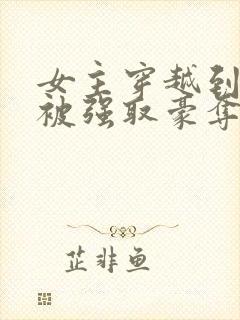 女主穿越到
被强取豪夺
芷非鱼